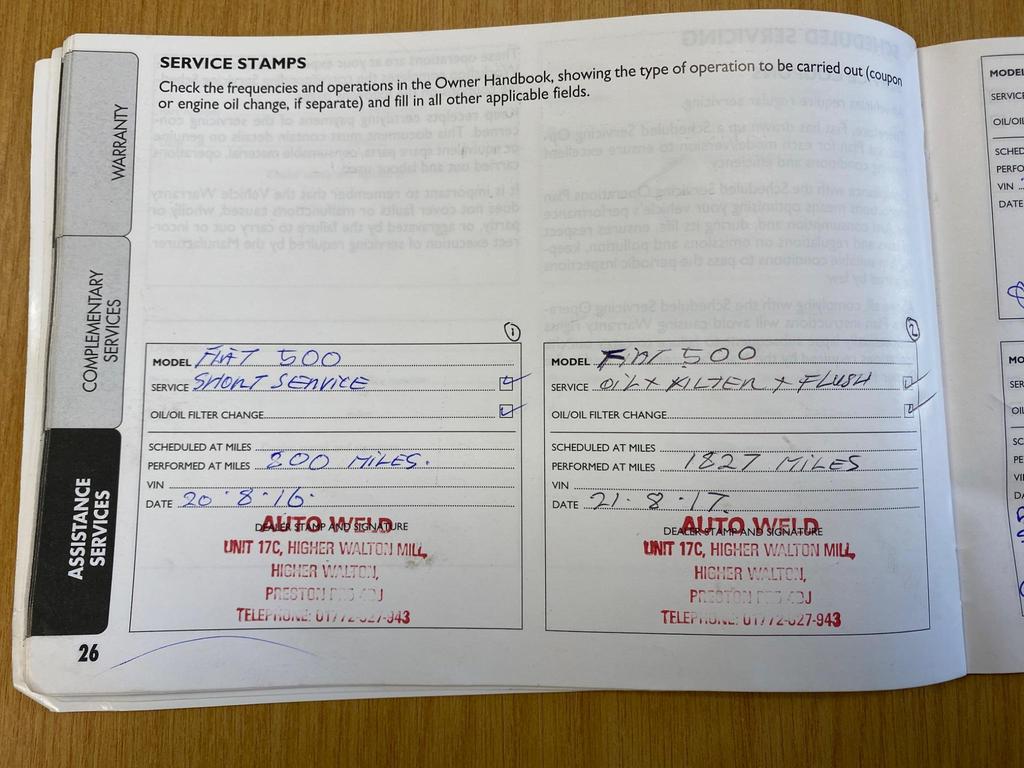 SERVICE STAMPS
Check the frequencies and operations in the Owner Handbook, showing the type of operation to be carried out (coupon
or engine oil change, if separate) and fill in all other applicable fields.
WARRANTY
COMPLEMENTARY
SERVICES
ASSISTANCE
SERVICES
1
MODEL FIAT 500
SERVICE SHORT SERVICE
OIL/OIL FILTER CHANGE
SCHEDULED AT MILES
PERFORMED AT MILES 800 MILES.
VIN
DATE 20.8.16.
DEALER STAMP AND SIGNATURE
AUTO WELD
UNIT 17C, HIGHER WALTON MILL,
HIGHER WALTON,
PRESTON
TELEPHONE: 01772-627-943
2
MODEL FIAT 500
SERVICE OIL + FILTER + FLUSH
OIL/OIL FILTER CHANGE
SCHEDULED AT MILES
PERFORMED AT MILES 1827 MILES
VIN
DATE 21.8.17.
DEALER STAMP AND SIGNATURE
AUTO WELD
UNIT 17C, HIGHER WALTON MILL,
HIGHER WALTON,
PRESTON
TELEPHONE: 01772-627-943
26
MODEL
SERVICE
OIL/OIL
SCHED
PERFO
VIN
DATE
MO
SER
OIL
SC
PE
VI
DA